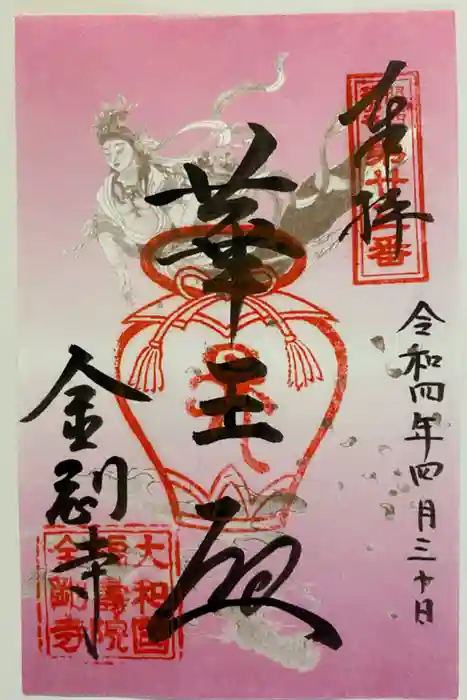 奉拝
令和四年四月三十日
華王殿
金剛寺
大和国
福寿院
金剛寺